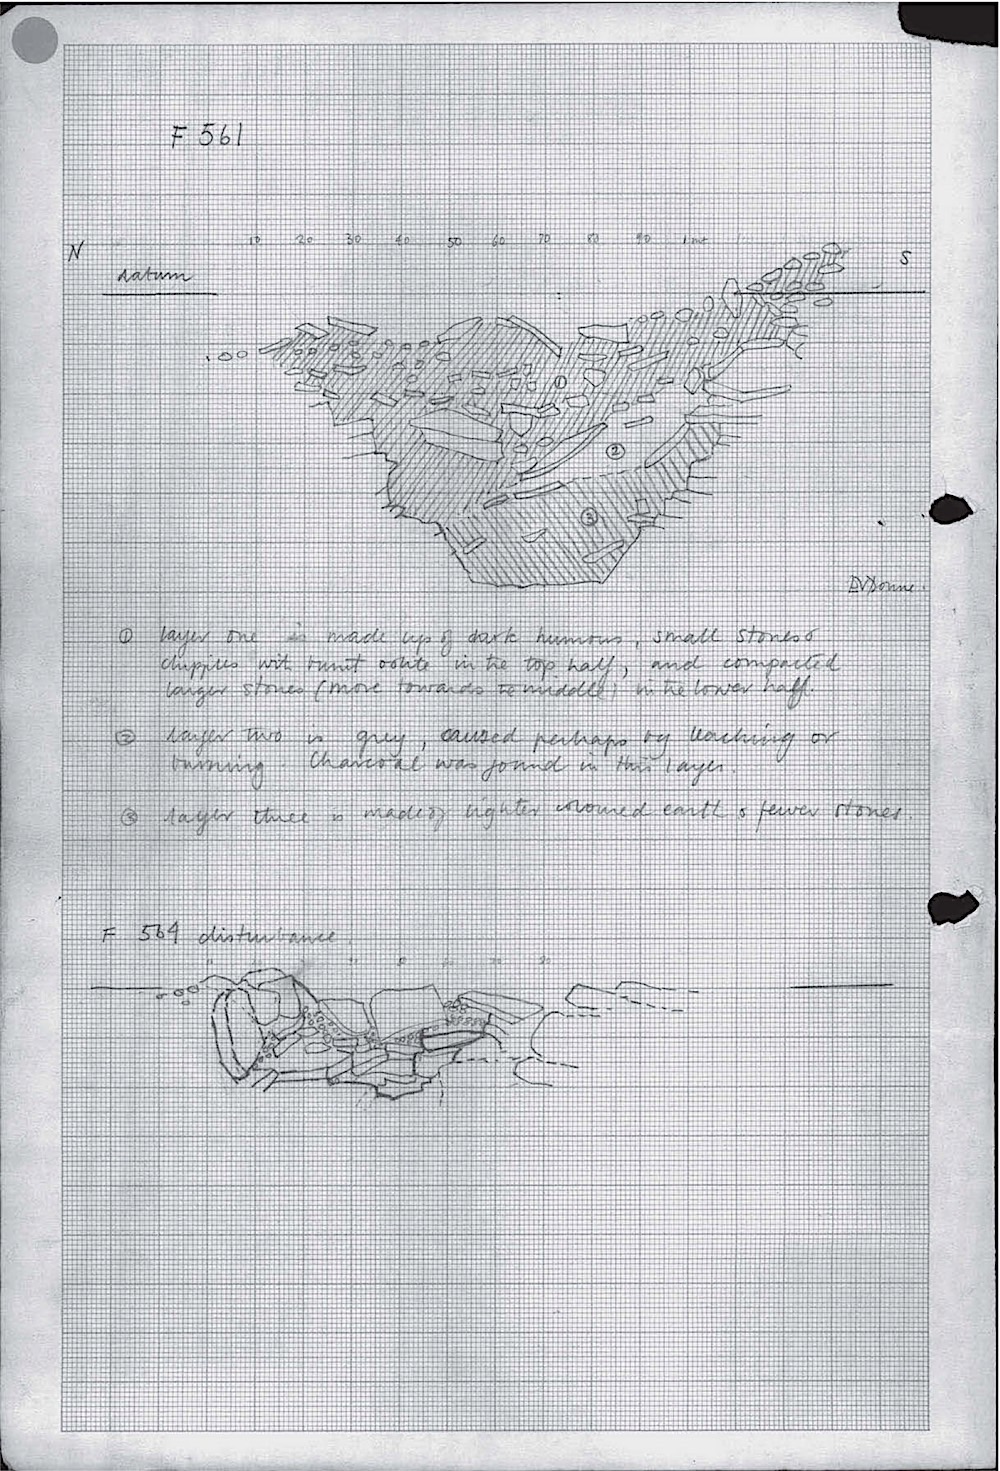 F 561
10 20 30 40 50 60 70 80 90 1 mt
N
S
datum
①
②
③
① layer one is made up of dark humous, small stones &
chipples wit burnt oolite in the top half, and compacted
larger stones (more towards te middle) in the lower half.
② layer two is grey, caused perhaps by leaching or
burning. Charcoal was found in this layer.
③ layer three is made of lighter coloured earth & fewer stones.
F 564 disturbance.